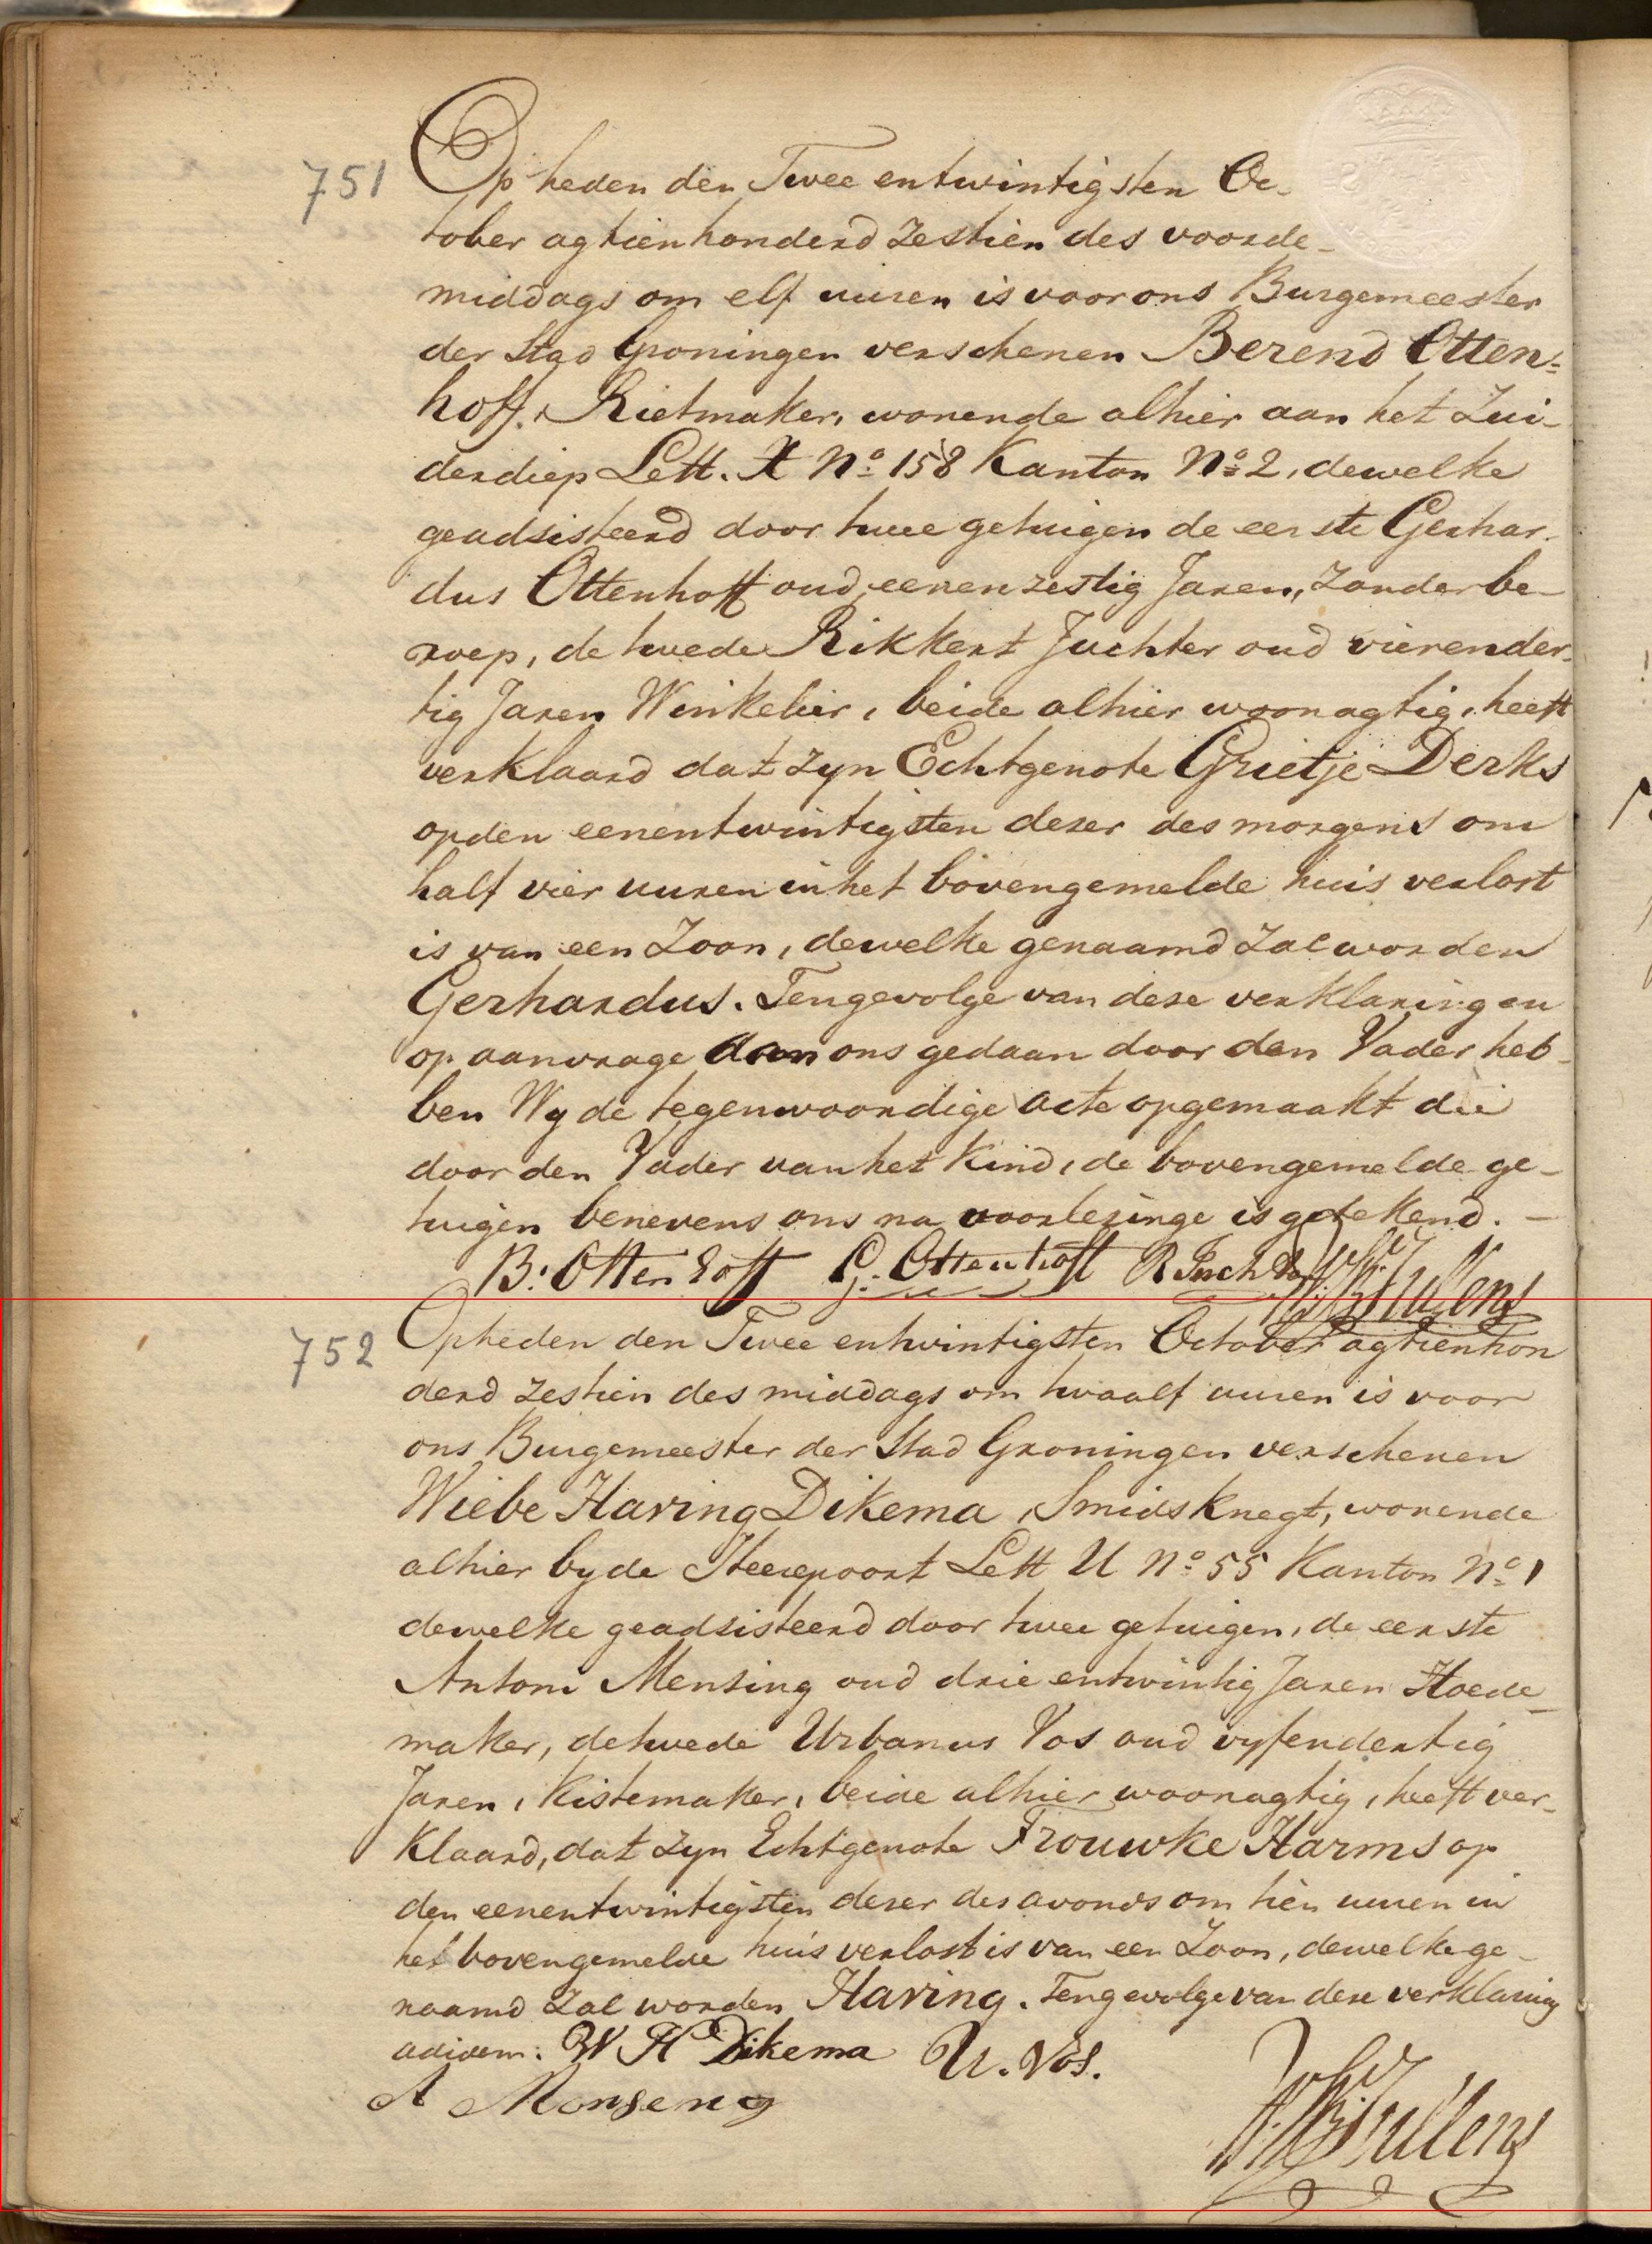 751
Op heden den Twee entwintigsten Oc-
tober agtienhonderd zestien des voorde-
middags om elf uuren is voor ons Burgemeester
der Stad Groningen verschenen Berend Otten=
hoff, Rietmaker, wonende alhier aan het Zui-
derdiep Lett. X No. 158 Kanton No. 2, dewelke
geadsisteerd door twee getuigen de eerste Gerhar-
dus Ottenhoff oud eenenzestig Jaren, zonder be-
roep, de twede Rikkert Juchter oud vierender-
tig Jaren Winkelier, beide alhier woonagtig, heeft
verklaard dat zyn Echtgenote Grietje Derks
op den eenentwintigsten dezer des morgens om
half vier uuren in het bovengemelde huis verlost
is van een Zoon, dewelke genaamd zal worden
Gerhardus. Tengevolge van deze verklaring en
op aanvrage aan ons gedaan door den Vader heb-
ben Wy de tegenwoordige acte opgemaakt die
door den Vader van het Kind, de bovengemelde ge-
tuigen benevens ons na voorlezinge is getekend. —
B: Ottenhoff G. Ottenhoff R Juchter
752
Op heden den Twee entwintigsten October agtienhon
derd zestien des middags om twaalf uuren is voor
ons Burgemeester der Stad Groningen verschenen
Wiebe Haring Dikema, Smidsknegt, wonende
alhier by de Heerepoort Lett U No. 55 Kanton No. 1
dewelke geadsisteerd door twee getuigen, de eerste
Antoni Mensing oud drie entwintig Jaren Hoede-
maker, de twede Urbanus Vos oud vyfendertig
Jaren, Kistemaker, beide alhier woonagtig, heeft ver-
klaard, dat zyn Echtgenote Trouwke Harms op
den eenentwintigsten dezer des avonds om tien uuren in
het bovengemelde huis verlost is van een Zoon, dewelke ge-
naamd zal worden Haring. Tengevolge van deze verklaring
adidem. W H Dikema U. Vos.
A Monseng